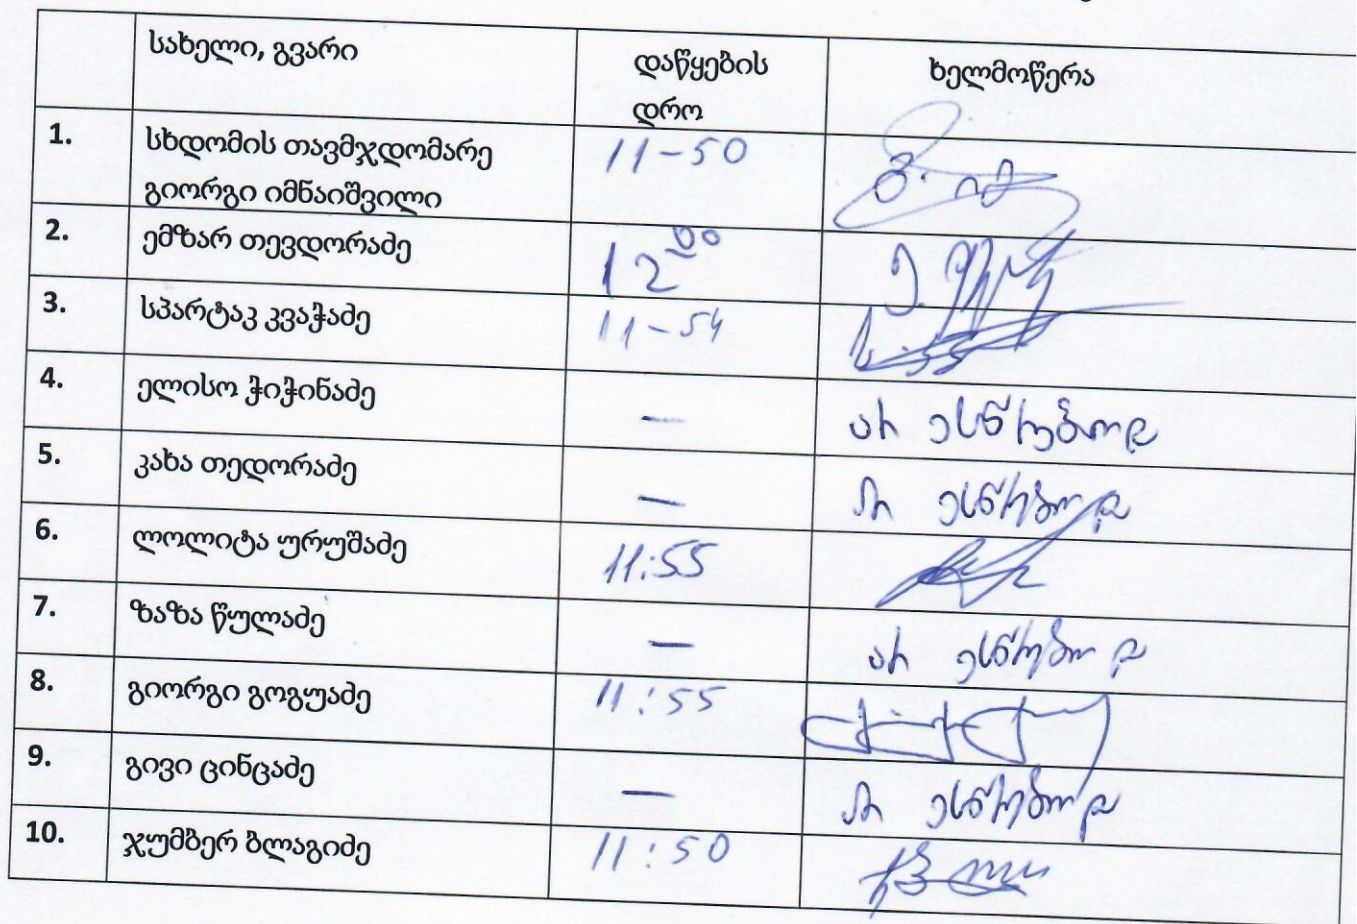 სახელი, გვარი დაწყების დრო ხელმოწერა
1. სხდომის თავმჯდომარე გიორგი იმნაიშვილი 11-50
2. ემზარ თევდორაძე 12 00
3. სპარტაკ კვაჭაძე 11-54
4. ელისო ჭიჭინაძე — არ ესწრებოდა
5. კახა თედორაძე — არ ესწრებოდა
6. ლოლიტა ურუშაძე 11:55
7. ზაზა წულაძე — არ ესწრებოდა
8. გიორგი გოგუაძე 11:55
9. გივი ცინცაძე — არ ესწრებოდა
10. ჯუმბერ ბლაგიძე 11:50